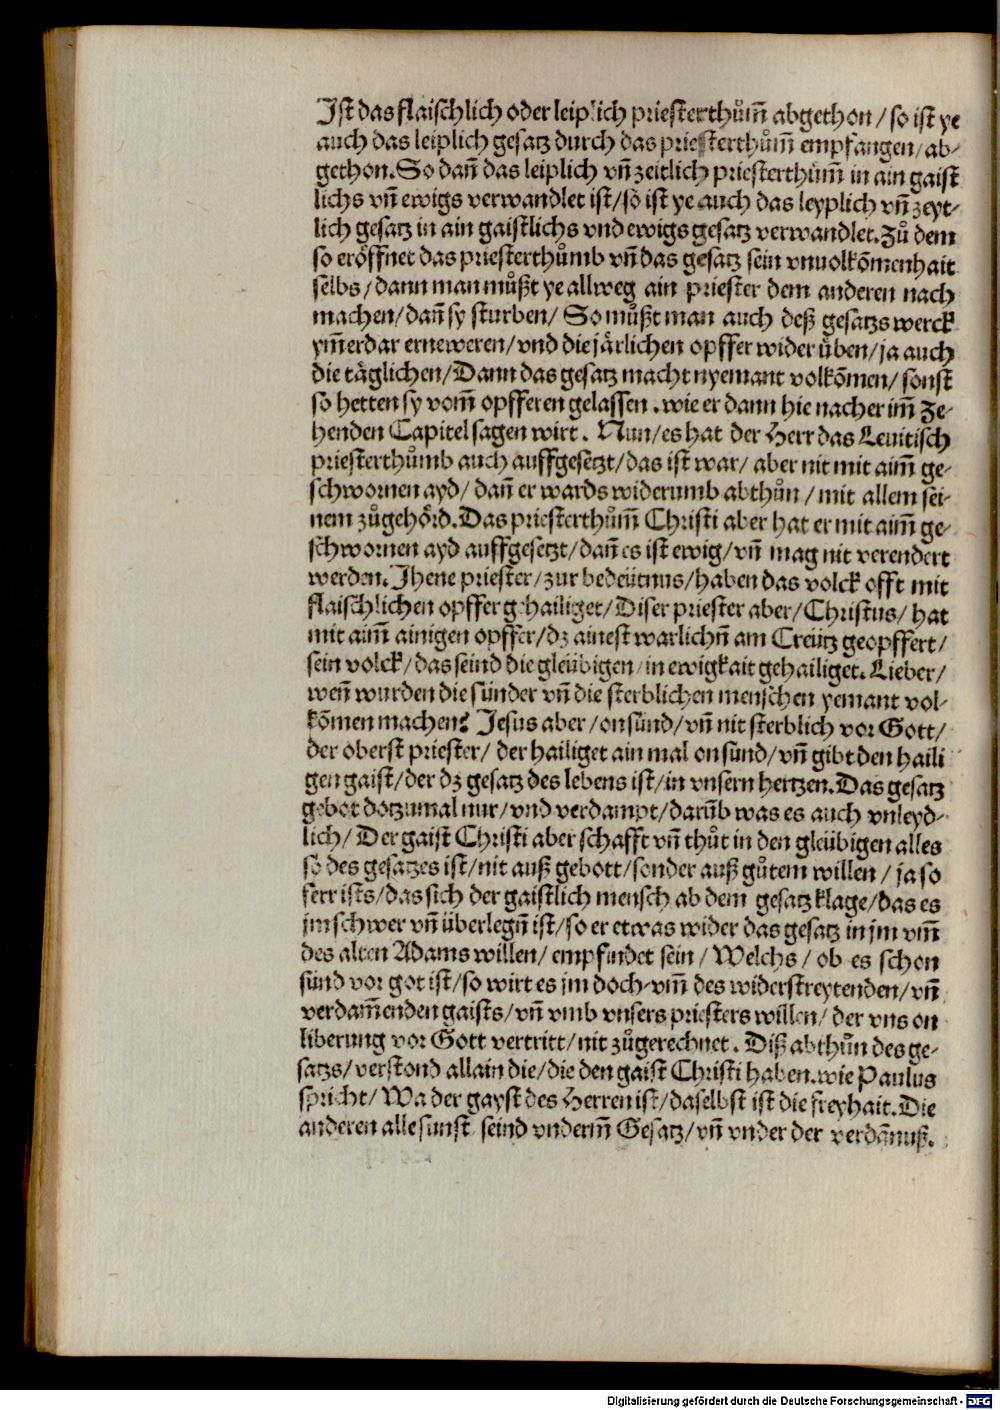 Ist das flaischlich oder leiplich priesterthům̃ abgethon / so ist ye
auch das leiplich gesatz durch das priesterthům̃ empfangen / ab-
gethon. So dañ das leiplich vñ zeitlich priesterthům̃ in ain gaist
lichs vñ ewigs verwandlet ist / so ist ye auch das leyplich vñ zeyt-
lich gesatz in ain gaistlichs vnd ewigs gesatz verwandlet. Zů dem
so eröffnet das priesterthůmb vñ das gesatz sein vnuolkõmenhait
selbs / dann man můßt ye allweg ain priester dem anderen nach
machen / dañ sy sturben / So můßt man auch deß gesatzs werck
ym̃erdar erneweren / vnd die järlichen opffer wider üben / ja auch
die täglichen / Dann das gesatz macht nyemant volkõmen / sonst
so hetten sy vom̃ opfferen gelassen . wie er dann hie nacher im̃ Ze-
henden Capitel sagen wirt . Nun / es hat der Herr das Leuitisch
priesterthůmb auch auffgesetzt / das ist war / aber nit mit aim̃ ge-
schwornen ayd / dañ er wards widerumb abthůn / mit allem sei-
nem zůgehörd. Das priesterthům̃ Christi aber hat er mit aim̃ ge-
schwornen ayd auffgesetzt / dañ es ist ewig / vñ mag nit verendert
werden. Ihene priester / zur bedeütnus / haben das volck offt mit
flaischlichen opffer gehailiget / Diser priester aber / Christus / hat
mit aim̃ ainigen opffer / dz ainest warlichñ am Creütz geopffert /
sein volck / das seind die gleübigen / in ewigkait gehailiget. Lieber /
weñ wurden die sünder vñ die sterblichen menschen yemant vol-
kõmen machen? Jesus aber / on sünd / vñ nit sterblich vor Gott /
der oberst priester / der hailiget ain mal on sünd / vñ gibt den haili
gen gaist / der dz gesatz des lebens ist / in vnsern hertzen. Das gesatz
gebot dotzumal nur / vnd verdampt / darũb was es auch vnleyd-
lich / Der gaist Christi aber schafft vñ thůt in den gleübigen alles
so des gesatzes ist / nit auß gebott / sonder auß gůtem willen / ja so
ferr ists / das sich der gaistlich mensch ab dem gesatz klage / das es
jm schwer vñ überlegñ ist / so er etwas wider das gesatz in jm vm̃
des alten Adams willen / empfindet sein / Welchs / ob es schon
sünd vor got ist / so wirt es jm doch vm̃ des widerstreytenden / vñ
verdam̃enden gaists / vñ vmb vnsers priesters willen / der vns on
liberung vor Gott vertritt / nit zůgerechnet . Diß abthůn des ge-
satzs / verstond allain die / die den gaist Christi haben. wie Paulus
spricht / Wa der gayst des Herren ist / daselbst ist die freyhait. Die
anderen alle sunst seind vnderm̃ Gesatz / vñ vnder der verdãnuß.
Digitalisierung gefördert durch die Deutsche Forschungsgemeinschaft - DFG